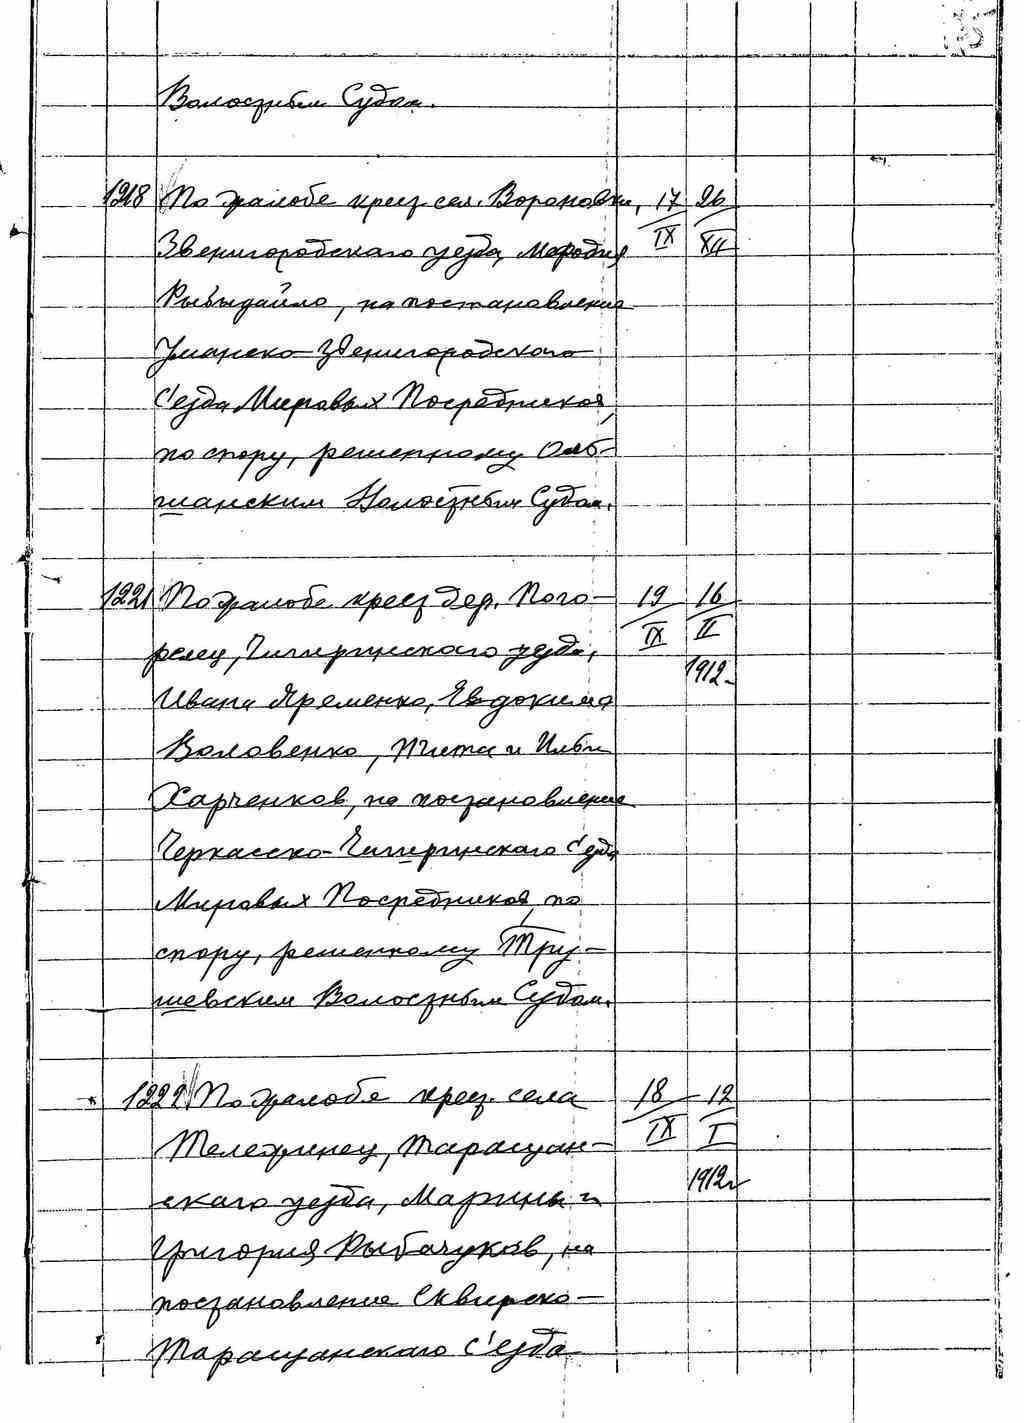 Волостным Судом.
1218 По жалобе крест. сел. Вороновки, 17/IX 26/XII
Звенигородского уезда,
на постановление
Уманско-Звенигородского
с'езда Мировых Посредников,
по спору, решенному Оль-
шанским Волостным Судом.
1221 По жалобе крест. дер. Пого-
релец, Чигиринского уезда, 19/IX 16/II 1912
Ивана Яременко, Евдокима
Воловенко, Тита и Ильи
Харченков, на постановление
Черкасско-Чигиринского с'езда
Мировых Посредников, по
спору, решенному Тру-
шевским Волостным Судом.
1222 По жалобе крест. села 18/IX 12/I
Тележинец, Таращан- 1912 г.
ского уезда, Марины и
Григория Рыбачуков, на
постановление Сквирско-
Таращанского с'езда